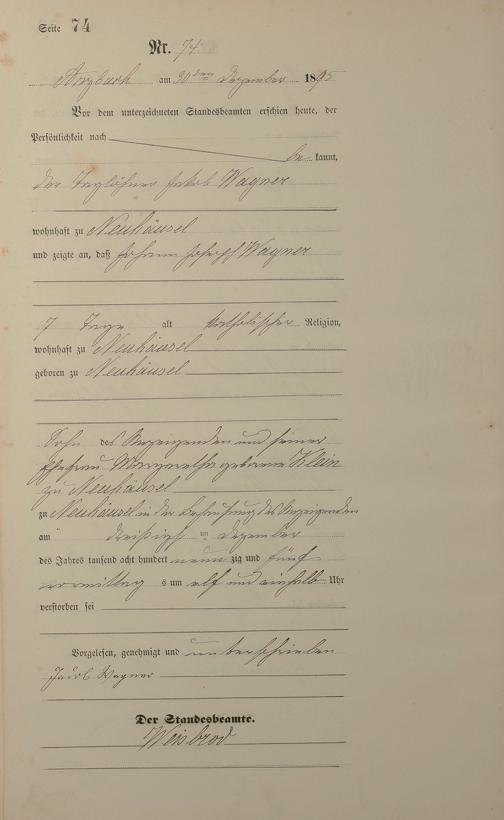 Seite 74
Nr. 74
Arzbach am 30ten Dezember 1895
Vor dem unterzeichneten Standesbeamten erschien heute, der
Persönlichkeit nach
be kannt,
der Taglöhner Jakob Wagner
wohnhaft zu Neuhäusel
und zeigte an, daß Johann Joseph Wagner
7 Tage alt katholischer Religion,
wohnhaft zu Neuhäusel
geboren zu Neuhäusel
Sohn des Anzeigenden und seiner
Ehefrau Margaretha geborene Klein
zu Neuhäusel
zu Neuhäusel in der Behausung des Anzeigenden
am dreißigsten Dezember
des Jahres tausend acht hundert neun zig und fünf
vormittag s um elf und einhalb Uhr
verstorben sei
Vorgelesen, genehmigt und unterschrieben
Jacob Wagner
Der Standesbeamte.
Weisbrod